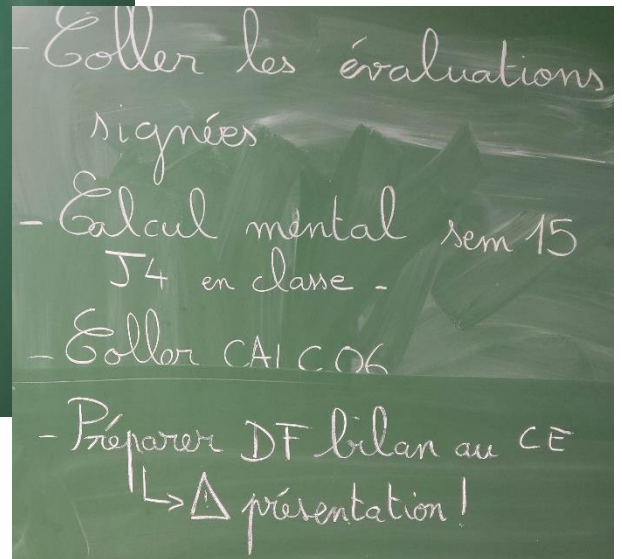 - Coller les évaluations
signées
- Calcul mental sem 15
J4 en classe -
- Coller CALC06
- Préparer DF bilan au CE
↳ ⚠ présentation !